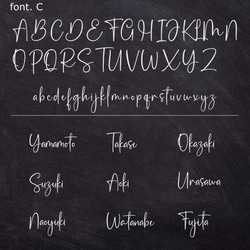 font. C
ABCDEFGHIJKLMN
OPQRSTUVWXYZ
abcdefghijklmnopqrstuvwxyz
Yamamoto Takase Okazaki
Suzuki Aoki Urasawa
Naoyuki Watanabe Fujita